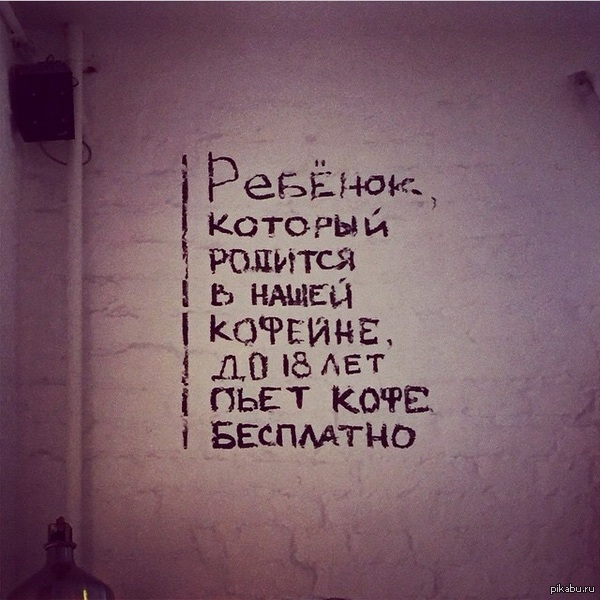 Ребёнок,
который
родится
в нашей
кофейне,
до 18 лет
пьет кофе
бесплатно
pikabu.ru